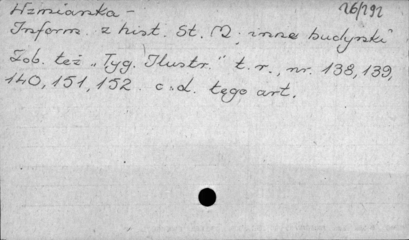 Wzmianka -
26/192
Inform. z hist. St. M. inne budynki
Zob. też "Tyg. Ilustr." t. r., nr. 138, 139,
140, 151, 152. c.d. tego art.